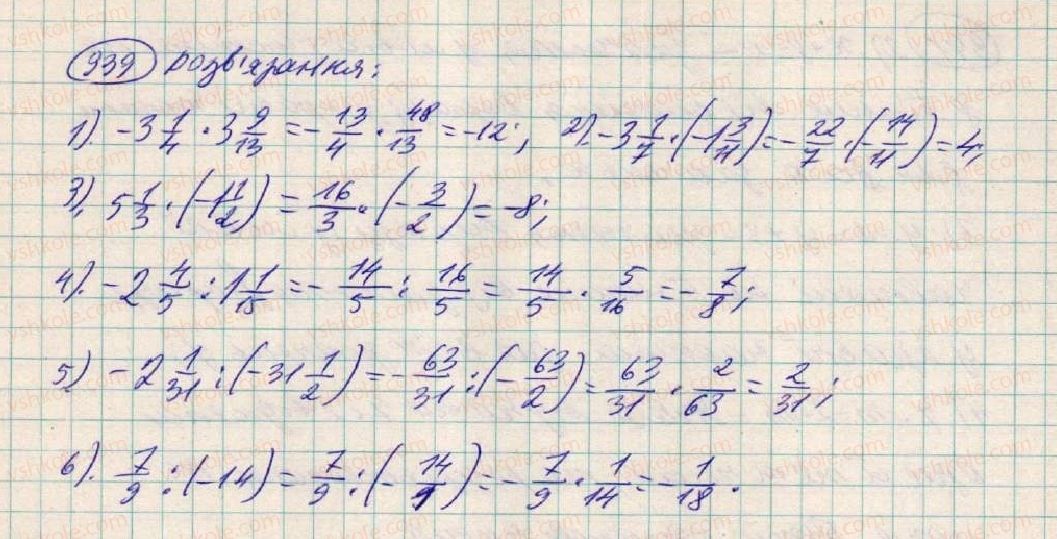 939 Розв'язання:
1). -3 1/4 · 3 9/13 = - 13/4 · 48/13 = -12; 2). -3 1/7 · (-1 3/11) = - 22/7 · (- 14/11) = 4;
3). 5 1/3 · (-1 1/2) = 16/3 · (- 3/2) = -8;
4). -2 4/5 : 1 1/15 = - 14/5 : 16/5 = 14/5 · 5/16 = - 7/8;
5) -2 1/31 : (-31 1/2) = - 63/31 : (- 63/2) = 63/31 · 2/63 = 2/31;
6). 7/9 : (-14) = 7/9 : (- 14/1) = - 7/9 · 1/14 = - 1/18.